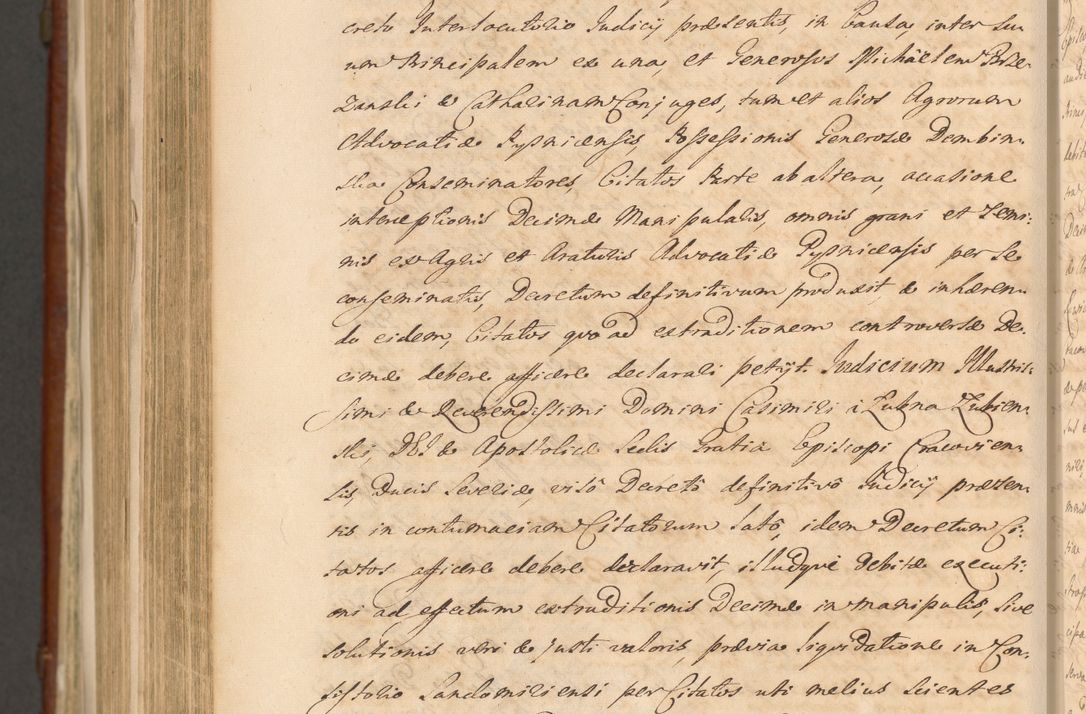 creto Interlocutorio Judicij præsentis, in Causa, inter su-
um Principalem ex una, et Generosus Michaëlem Brze-
zanski & Catharinam Conjuges, tum et alios Agrorum
Advocatiæ Pysnicensis Possessionis Generosæ Dembin-
ska Conseminatores, Citatos Parte ab altera, occasione
interceptionis Decimæ Manipularis, omnis grani et semi-
nis ex Agris et Araturis Advocatiæ Pysnicensis per se
conseminatis, Decretum definitivum produxit, & inhæren-
do eidem, Citatos quo ad extraditionem controversæ De-
cimæ debere afficere declarari petijt. Judicium Illustris-
simi & Reverendissimi Domini Casimiri à Łubna Łubien-
ski, DEI & Apostolicæ Sedis Gratia Episcopi Cracovien-
sis, Ducis Severiæ, visô Decretô definitivô Judicij præsen-
tis in contumaciam Citatorum latô, idem Decretum Ci-
tatos afficere debere declaravit, illudque debitæ executi-
oni ad effectum extraditionis Decimæ in manipulis, sive
solutionis veri & justi valoris, prævia liquidatione in Con-
sistorio Sandomiriensi per Citatos uti melius scientes